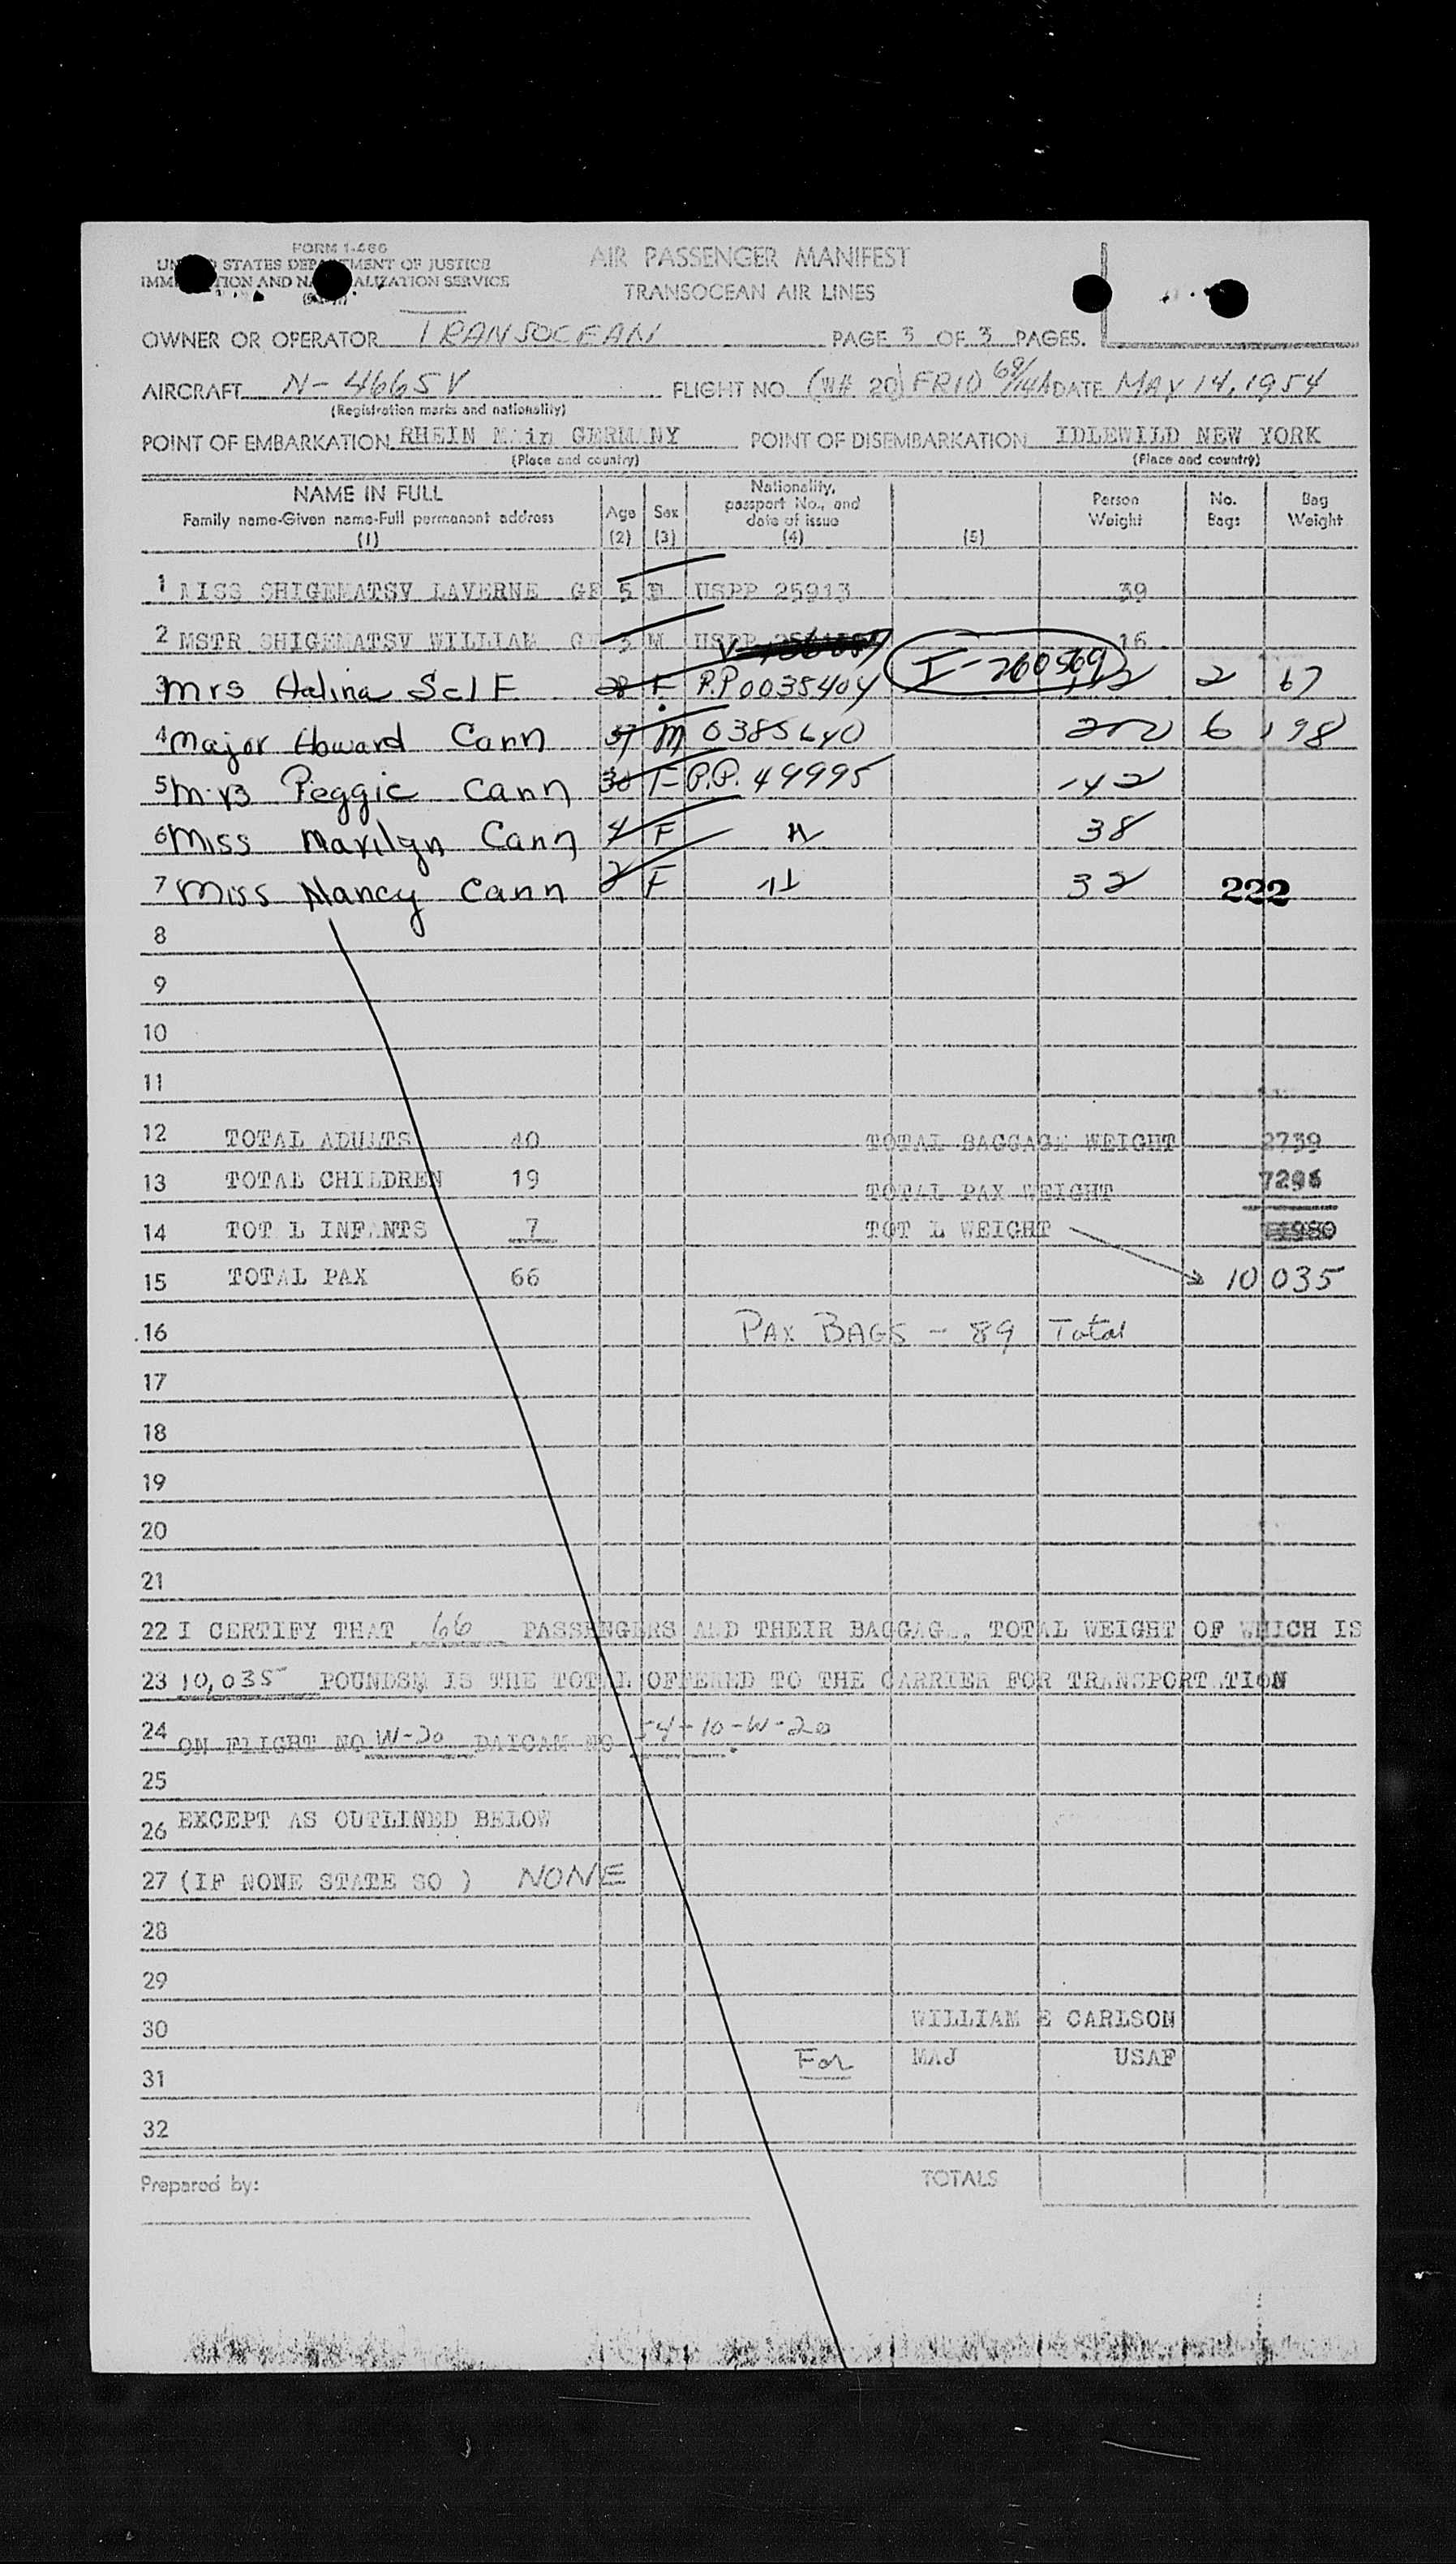 FORM I-466
UNITED STATES DEPARTMENT OF JUSTICE
IMMIGRATION AND NATURALIZATION SERVICE
AIR PASSENGER MANIFEST
TRANSOCEAN AIR LINES
OWNER OR OPERATOR TRANSOCEAN PAGE 3 OF 3 PAGES.
AIRCRAFT N-4665V FLIGHT NO. (WH 20) FR10 68/14A DATE MAY 14, 1954
(Registration marks and nationality)
POINT OF EMBARKATION RHEIN MAin GERMANY POINT OF DISEMBARKATION IDLEWILD NEW YORK
(Place and country) (Place and country)
NAME IN FULL
Family name-Given name-Full permanent address
(1)
Age
(2)
Sex
(3)
Nationality,
passport No., and
date of issue
(4)
(5)
Person
Weight
No.
Bags
Bag
Weight
1 MISS SHIGEMATSV LAVERNE GF 5 F USPP 25913 39
2 MSTR SHIGEMATSV WILLIAM 3 M USPP 16
V- I-260569
3 Mrs Halina Self 28 F P.P 0035404 112 2 67
4 Major Howard Cann 37 M 0385640 200 6 198
5 Mrs Peggie Cann 30 F P.P. 49995 142
6 Miss Marilyn Cann 4 F " 38
7 Miss Nancy Cann 2 F " 32 222
8
9
10
11
12 TOTAL ADULTS 40 TOTAL BAGGAGE WEIGHT 2739
13 TOTAL CHILDREN 19 TOTAL PAX WEIGHT 7296
14 TOT L INFANTS 7 TOT L WEIGHT
15 TOTAL PAX 66 10035
16 PAX BAGS - 89 Total
17
18
19
20
21
22 I CERTIFY THAT 66 PASSENGERS AND THEIR BAGGAGE, TOTAL WEIGHT OF WHICH IS
23 10,035 POUNDSM IS THE TOTAL OFFERED TO THE CARRIER FOR TRANSPORTATION
24 ON FLIGHT NO W-20 DAICAM NO 54-10-W-20.
25
26 EXCEPT AS OUTLINED BELOW
27 (IF NONE STATE SO ) NONE
28
29
30 WILLIAM E CARLSON
31 For MAJ USAF
32
Prepared by: TOTALS